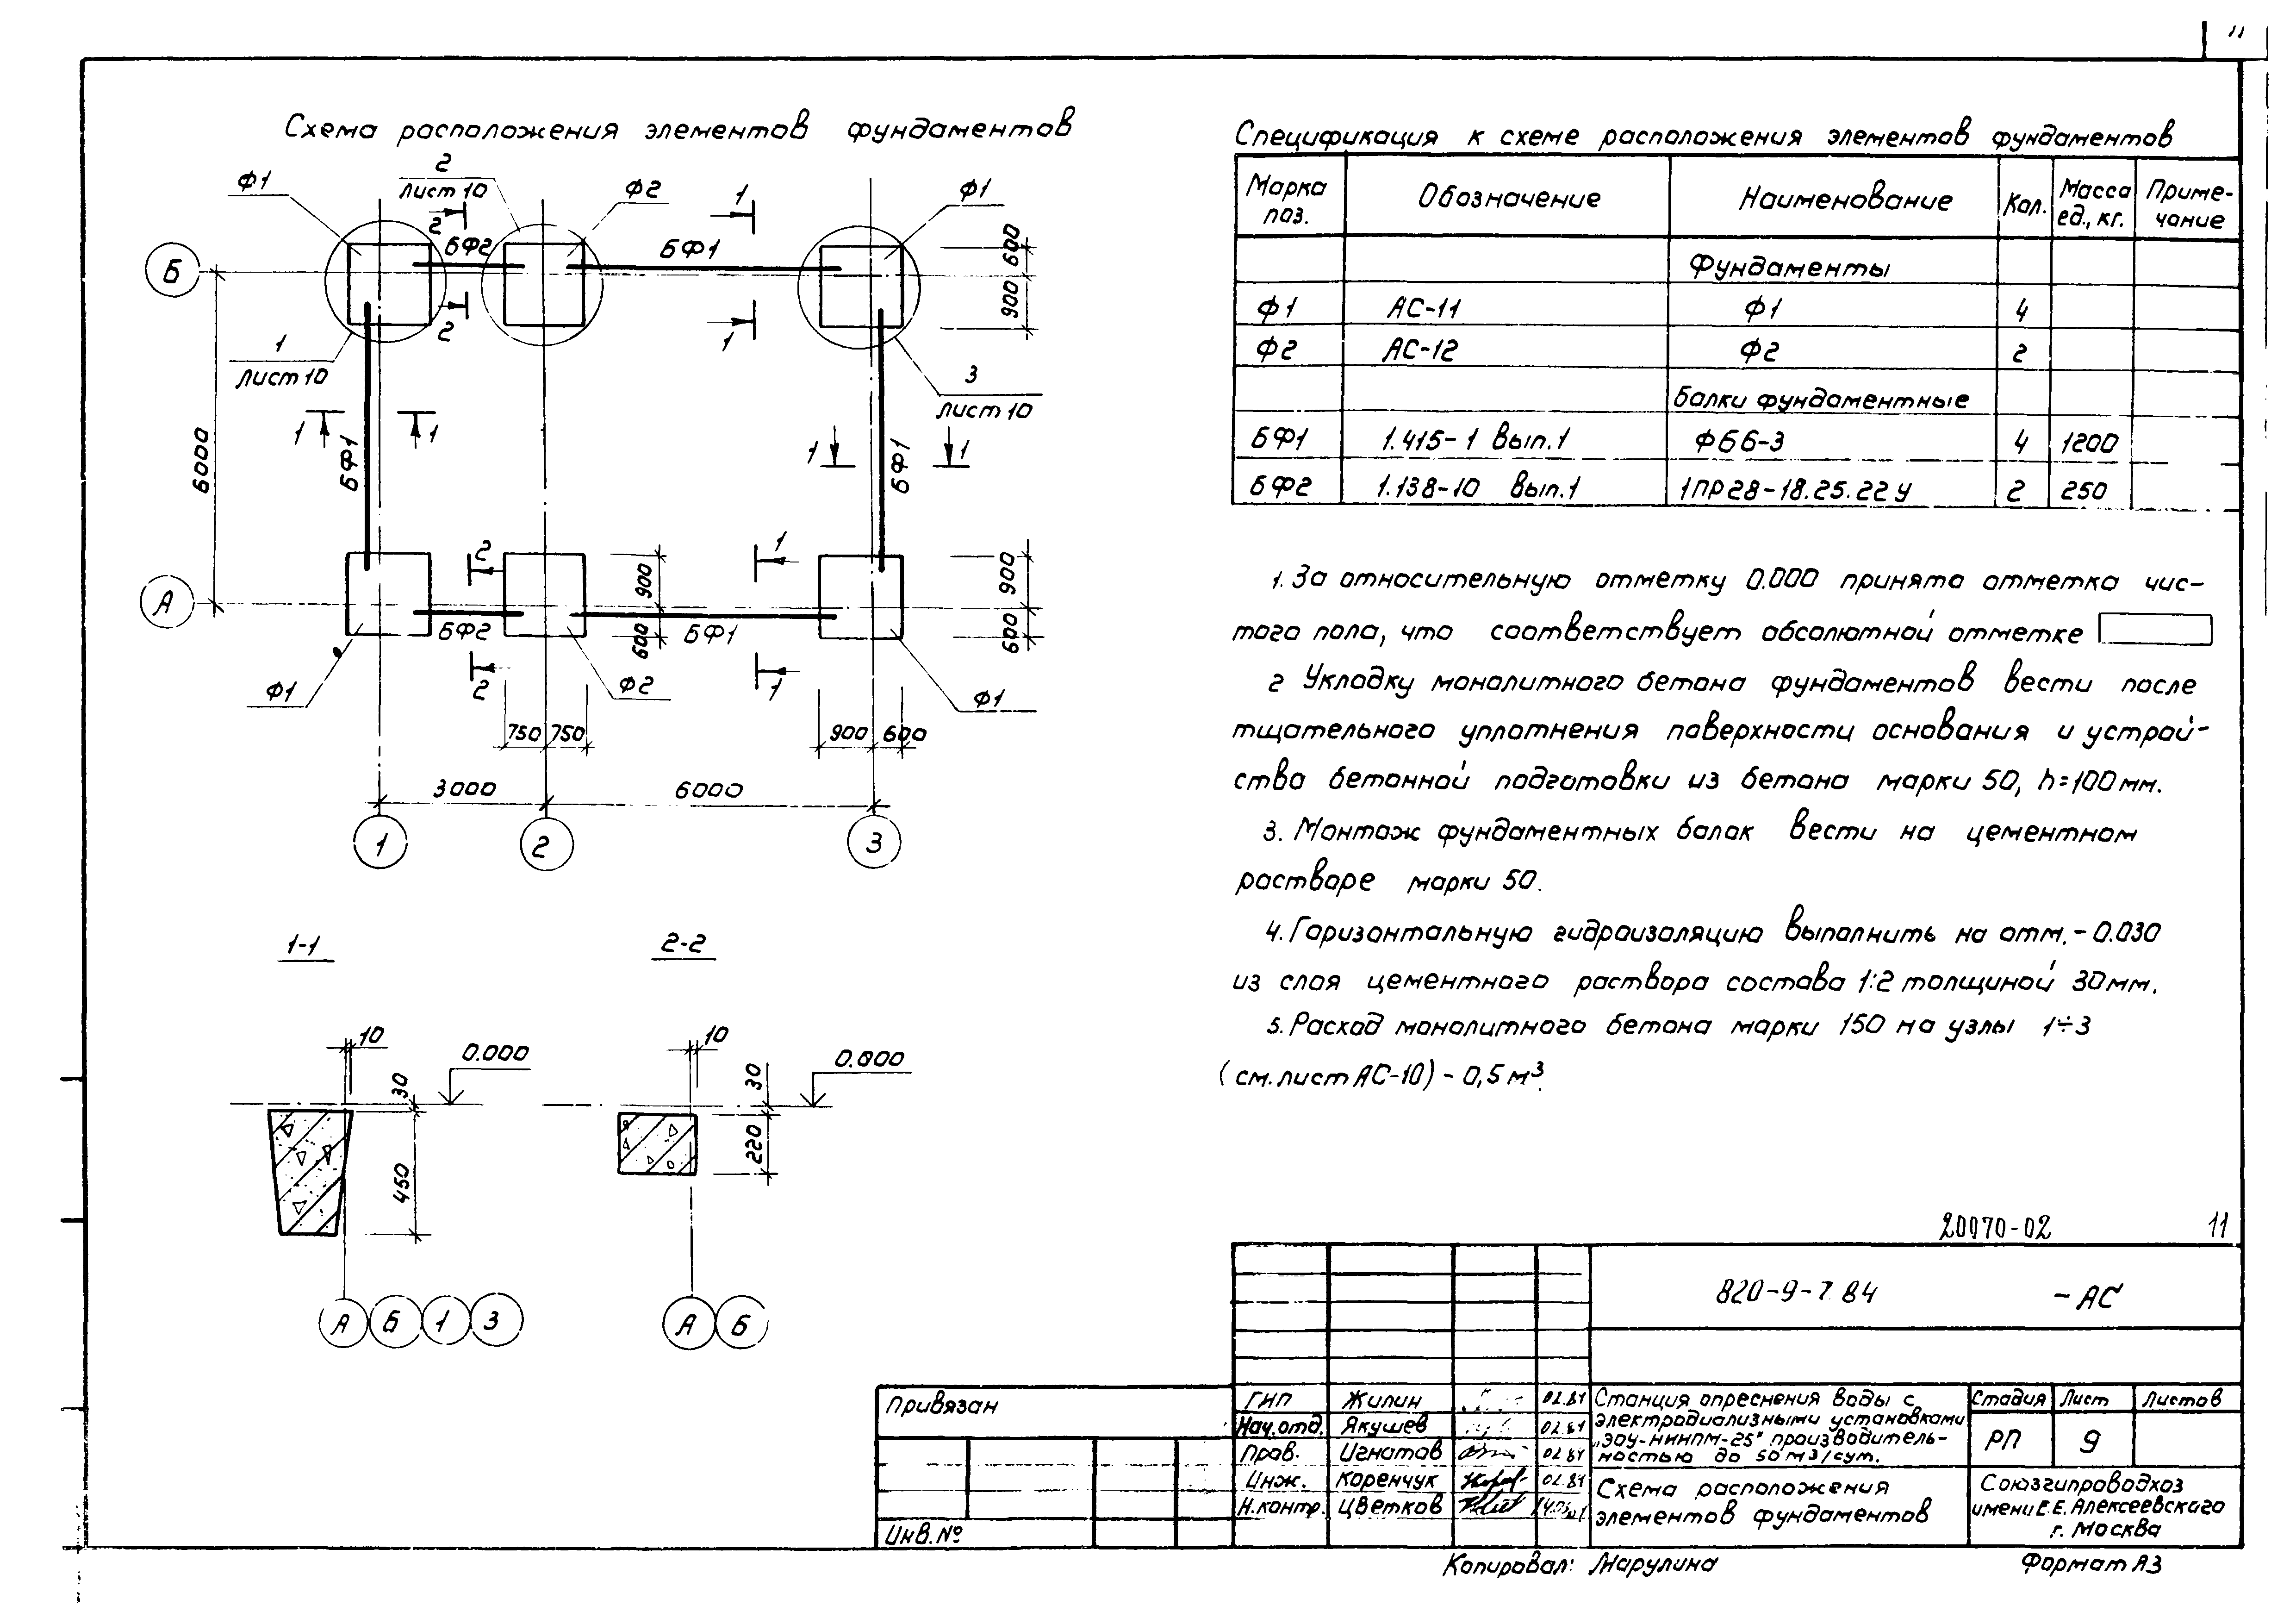 11
Схема расположения элементов фундаментов
Ф1
2
Лист 10
Ф2
1
Ф1
2
БФ2
БФ1
600
Б
900
2
1
1
Лист 10
3
Лист 10
6000
1
1
БФ1
1
1
БФ1
2
1
900
900
А
БФ2
600
БФ1
600
Ф1
2
Ф2
1
Ф1
750 750
900 600
3000
6000
1
2
3
1-1
2-2
10
0.000
10
0.000
30
30
450
220
А Б 1 3
А Б
Спецификация к схеме расположения элементов фундаментов
Марка поз. Обозначение Наименование Кол. Масса ед., кг. Приме-чание
Фундаменты
Ф1 АС-11 Ф1 4
Ф2 АС-12 Ф2 2
Балки фундаментные
БФ1 1.415-1 Вып.1 ФБ6-3 4 1200
БФ2 1.138-10 Вып.1 1ПР28-18.25.22У 2 250
1. За относительную отметку 0.000 принята отметка чис-
того пола, что соответствует абсолютной отметке
2 Укладку монолитного бетона фундаментов вести после
тщательного уплотнения поверхности основания и устрой-
ства бетонной подготовки из бетона марки 50, h=100мм.
3. Монтаж фундаментных балок вести на цементном
растворе марки 50.
4. Горизонтальную гидроизоляцию выполнить на отм. -0.030
из слоя цементного раствора состава 1:2 толщиной 30мм.
5. Расход монолитного бетона марки 150 на узлы 1÷3
(см. лист АС-10) - 0,5 м³.
20070-02 11
820-9-7.84 -АС
Привязан
Инв.№
ГИП Жилин 02.84
Нач.отд. Якушев 02.84
Пров. Игнатов 02.84
Инж. Коренчук 02.84
Н.контр. Цветков
Станция опреснения воды с
электродиализными установками
„ЭОУ-НИИПМ-25" производитель-
ностью до 50 м3/сут.
Стадия Лист Листов
РП 9
Схема расположения
элементов фундаментов
Союзгипроводхоз
имени Е.Е. Алексеевского
г. Москва
Копировал: Марулина
Формат А3